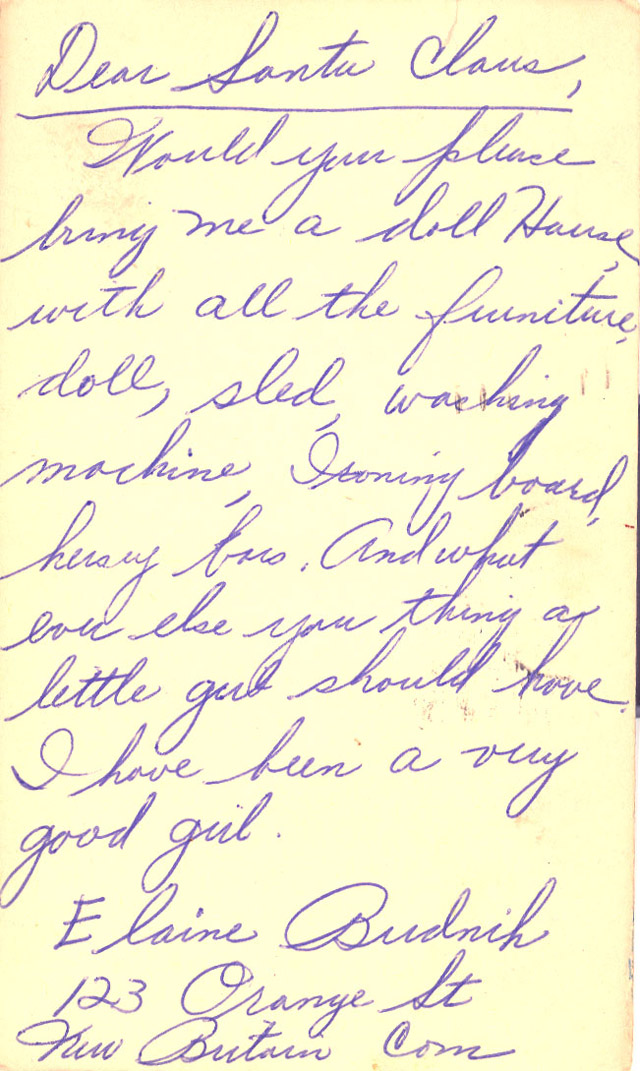 Dear Santa Claus,
Would you please
bring me a doll House,
with all the furniture,
doll, sled, washing
machine, Ironing board,
hersey bars. And what
ever else you thing a
little girl should have.
I have been a very
good girl.
Elaine Budnik
123 Orange St
New Britain Conn